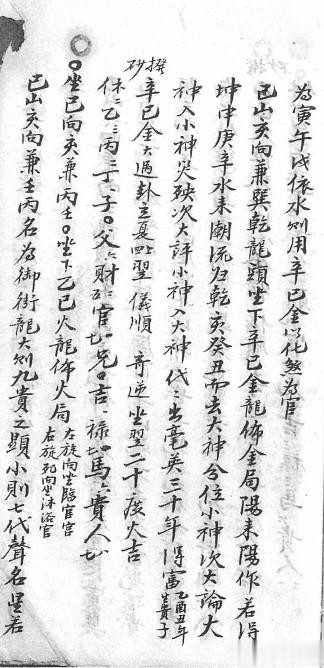 為寅午戌依水則用辛巳金以化煞為官
巳山亥向兼巽乾龍頭坐下辛巳金龍佈金局陽来陽作若得
坤申庚辛水来潮流归乾亥癸丑而去大神分位小神次大論大
神入小神災殃次大評小神入大神代〻出毫英三十年得富乙酉丑年生貴子
撰砂
辛巳金大過卦立夏 翌儀順 奇逆坐翌二十度火吉
休〻乙〻丙〻丁、子〇父〻財 官 兄〇吉、禄 馬〻貴人
〇坐巳向亥兼丙壬〇坐下乙巳火龍佈火局左旋向坐臨官宫右旋死向坐沐浴宫
巳山亥向兼壬丙名為御街龍大則九貴之顕小則七代聲名呈若